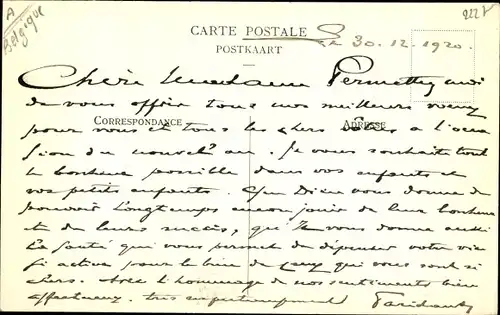 A
Belgique
222
CARTE POSTALE
POSTKAART
Le 30.12.1920.
Chère Madame Permettez moi
de vous offrir tous mes meilleurs vœux
pour vous et tous les chers vôtres a l'occa
CORRESPONDANCE
ADRESSE
sion du nouvel an. Je vous souhaite tout
le bonheur possible dans vos enfants et
vos petits enfants. Que Dieu vous donne de
pouvoir longtemps encore jouir de leur bonheur
et de leurs succès, que Il vous donne aussi
la santé qui vous permet de dépenser votre vie
si active pour le bien de ceux qui vous sont si
chers. Avec l'hommage de nos sentiments bien
affectueux. très